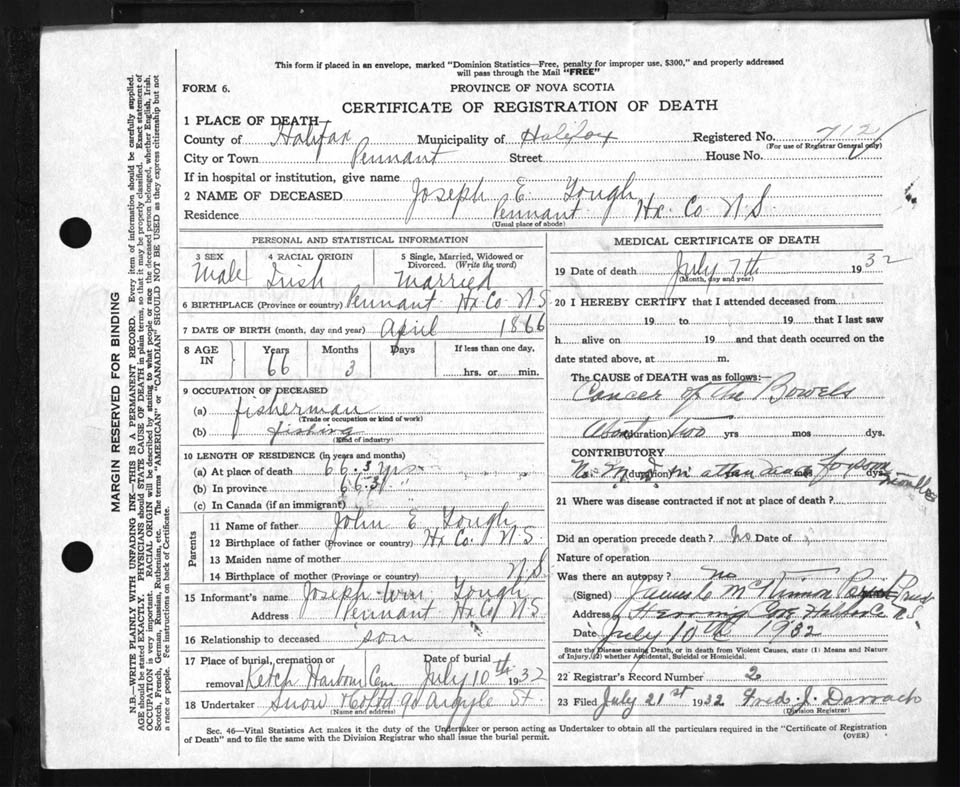 This form if placed in an envelope, marked "Dominion Statistics—Free, penalty for improper use, $300," and properly addressed
will pass through the Mail "FREE"
FORM 6. PROVINCE OF NOVA SCOTIA
CERTIFICATE OF REGISTRATION OF DEATH
1 PLACE OF DEATH
County of Halifax Municipality of Halifax Registered No. 712
(For use of Registrar General only)
City or Town Pennant Street House No.
If in hospital or institution, give name
2 NAME OF DECEASED Joseph E. Gough
Residence Pennant Hx. Co N.S.
(Usual place of abode)
PERSONAL AND STATISTICAL INFORMATION
3 SEX 4 RACIAL ORIGIN 5 Single, Married, Widowed or
Divorced. (Write the word)
Male Irish Married
6 BIRTHPLACE (Province or country) Pennant Hx. Co N.S.
7 DATE OF BIRTH (month, day and year) April 1866
8 AGE IN Years Months Days If less than one day,
66 3 hrs. or min.
9 OCCUPATION OF DECEASED
(a) fisherman
(Trade or occupation or kind of work)
(b) fishing
(Kind of industry)
10 LENGTH OF RESIDENCE (in years and months)
(a) At place of death 66.3 yrs
(b) In province 66.3 "
(c) In Canada (if an immigrant) "
Parents
11 Name of father John E Gough
12 Birthplace of father (Province or country) Hx Co. N.S.
13 Maiden name of mother
14 Birthplace of mother (Province or country) N.S.
15 Informant's name Joseph Wm. Gough
Address Pennant Hx Co N.S.
16 Relationship to deceased son
17 Place of burial, cremation or Date of burial
removal Ketch Harbour Cem July 10th 1932
18 Undertaker Snow 90 Argyle St
(Name and address)
MEDICAL CERTIFICATE OF DEATH
19 Date of death July 7th 1932
(Month, day and year)
20 I HEREBY CERTIFY that I attended deceased from
19 to 19 that I last saw
h alive on 19 and that death occurred on the
date stated above, at m.
The CAUSE of DEATH was as follows:
Cancer of the Bowels
About (duration) two yrs mos dys.
CONTRIBUTORY
No M. (duration) in attendance for some mos dys months
21 Where was disease contracted if not at place of death?
Did an operation precede death? no Date of
Nature of operation
Was there an autopsy? no
(Signed) James C Mc
Address Herring Cove Halifax Co N.S.
Date July 10th 1932
State the Disease causing Death, or in death from Violent Causes, state (1) Means and Nature
of Injury, (2) whether Accidental, Suicidal or Homicidal.
22 Registrar's Record Number 2
23 Filed July 21st 1932 Fred. J. Darrach
(Division Registrar)
Sec. 46—Vital Statistics Act makes it the duty of the Undertaker or person acting as Undertaker to obtain all the particulars required in the "Certificate of Registration
of Death" and to file the same with the Division Registrar who shall issue the burial permit. (OVER)
MARGIN RESERVED FOR BINDING
N.B.—WRITE PLAINLY WITH UNFADING INK—THIS IS A PERMANENT RECORD. Every item of information should be carefully supplied.
AGE should be stated EXACTLY. PHYSICIANS should STATE CAUSE OF DEATH in plain terms, so that it may be properly classified. Exact statement of
OCCUPATION is very important. RACIAL ORIGIN will be described by stating to what people or race the deceased person belonged, whether English, Irish,
Scotch, French, German, Russian, Ruthenian, etc. The terms "AMERICAN" or "CANADIAN" SHOULD NOT BE USED as they express citizenship but not
a race or people. See instructions on back of Certificate.